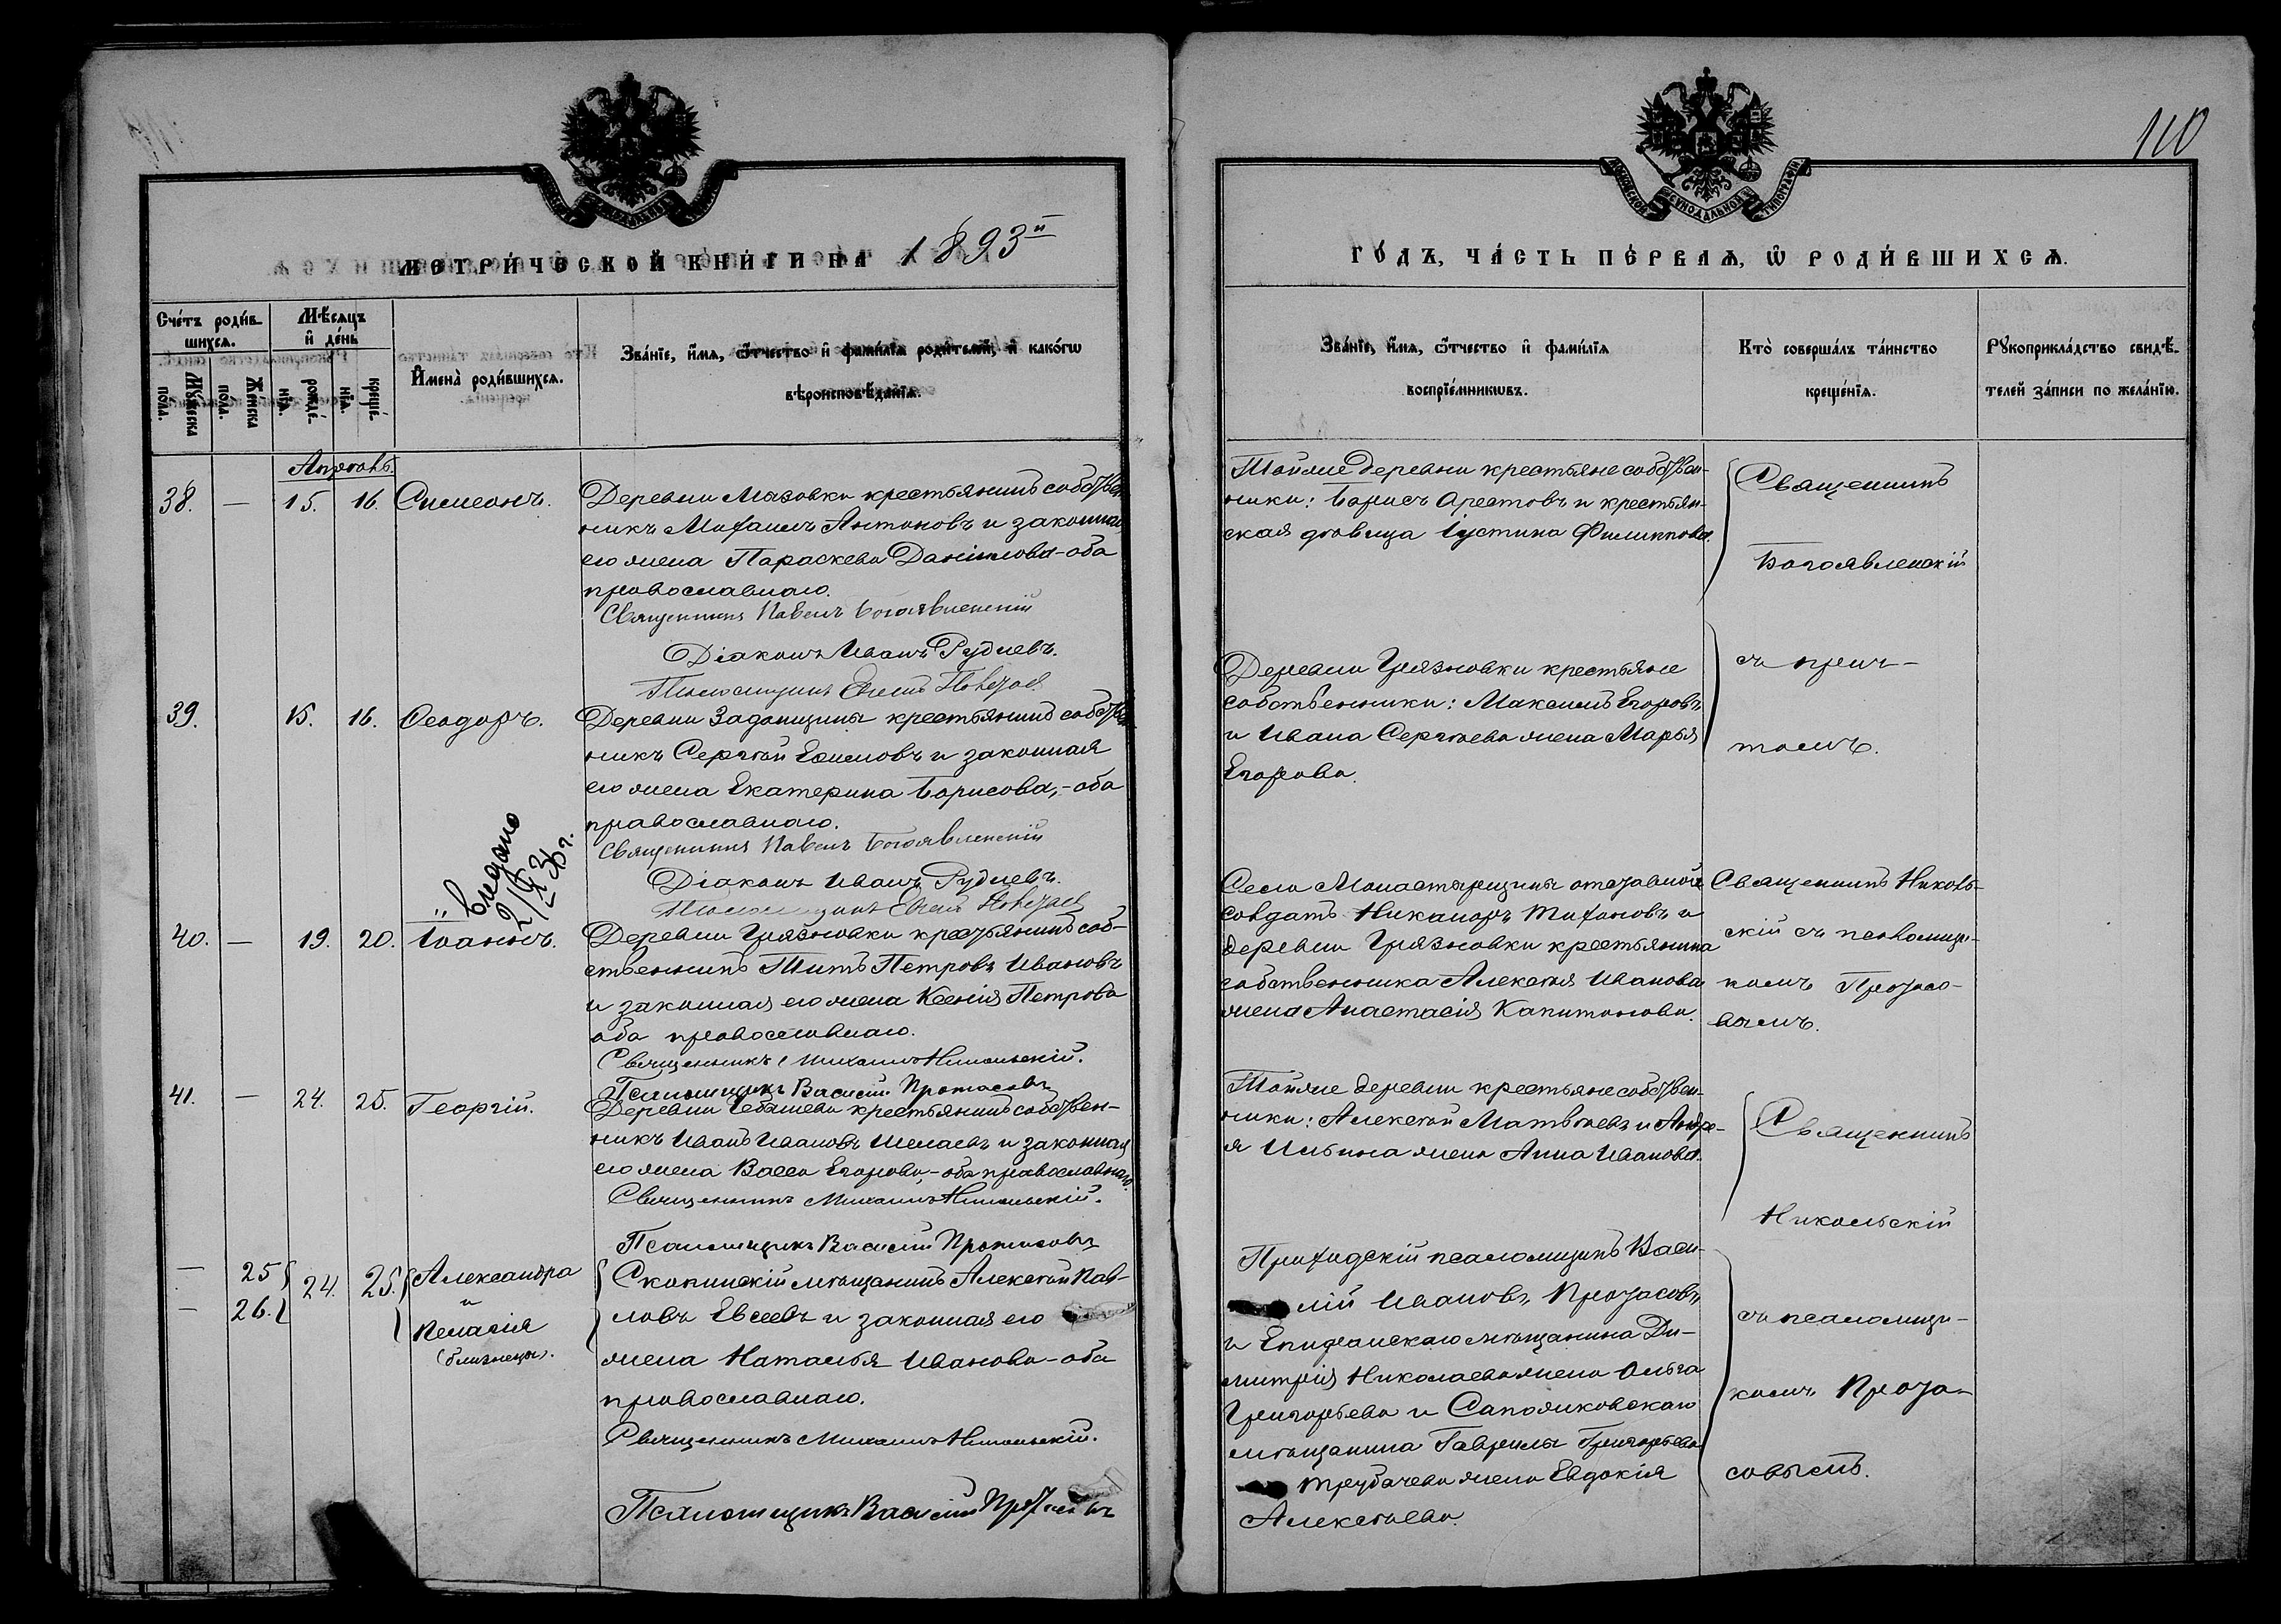 110
МЕТРИ́ЧЕСКОЙ КНИ́ГИ НА 1893й
ГО́ДЪ, ЧА́СТЬ ПЕ́РВАѦ, Ѡ РОДИ́ВШИХСѦ.
МОСКОВСКОЙ СѴНОДАЛЬНОЙ ТИПОГРАФІИ
Сче́тъ роди́в-
шихсѧ.
Мꙋ́жеска по́ла.
Же́нска по́ла.
Мѣ́сѧцъ
и҆ де́нь
рожде́-нїѧ.
креще́-нїѧ.
И҆мена̀ роди́вшихсѧ.
Зва́нїе, и҆́мѧ, ѻ҆́тчество и҆ фами́лїѧ роди́телей, и҆ како́гѡ
вѣроисповѣ́данїѧ.
Зва́нїе, и҆́мѧ, ѻ҆́тчество и҆ фами́лїѧ
воспрїе́мникѡвъ.
Кто̀ соверша́лъ та́инство
креще́нїѧ.
Рꙋкоприкла́дство свидѣ́-
телей за́писи по жела́нїю.
Апрѣль.
38. — 15. 16. Симеонъ.
Деревни Мызовки крестьянинъ собствен
никъ Михаилъ Антоновъ и законная
его жена Параскева Данилова - оба
православнаго.
Священникъ Павелъ Богоявленскій
Діаконъ Иванъ Рудневъ.
Псаломщикъ
Тойже деревни крестьяне собствен-
ники: Борисъ Арестовъ и крестьян-
ская дѣвица Іустина Филиппова.
Священникъ
Богоявленскій
съ прич-
томъ.
39. 15. 16. Ѳеодоръ.
Деревни Задонщины крестьянинъ собствен
никъ Сергѣй Ефимовъ и законная
его жена Екатерина Борисова, - оба
православнаго.
Священникъ Павелъ Богоявленскій
Діаконъ Иванъ Рудневъ.
Псаломщикъ
Деревни Грязновки крестьяне
собственники: Максимъ Егоровъ
и Ивана Сергѣева жена Марья
Егорова.
выдано
40. — 19. 20. Іоаннъ.
Деревни Грязновки крестьянинъ соб-
ственникъ Титъ Петровъ Ивановъ
и законная его жена Ксенія Петрова
оба православнаго.
Священникъ Михаилъ Никольскій.
Псаломщикъ Василій Протасовъ
Села Монастырщины отставной
солдатъ Никаноръ Тихоновъ и
деревни Грязновки крестьянина
собственника Алексѣя Иванова
жена Анастасія Капитонова.
Священникъ Николь-
скій съ псаломщи-
комъ Протасо-
вымъ.
41. — 24. 25. Георгій.
Деревни Чебышева крестьянинъ собствен-
никъ Иванъ Ивановъ Шелаевъ и законная
его жена Васса Егорова, - оба православнаго.
Священникъ Михаилъ Никольскій.
Псаломщикъ Василій Протасовъ
Тойже деревни крестьяне собствен-
ники: Алексѣй Матвѣевъ и Андре-
я Ильина жена Анна Иванова.
Священникъ
Никольскій
съ псаломщи-
комъ Прота-
совымъ.
— 25 24. 25. Александра
и
— 26. Пелагія
(близнецы).
Скопинскій мѣщанинъ Алексѣй Пав-
ловъ Евсеевъ и законная его
жена Наталья Иванова - оба
православнаго.
Священникъ Михаилъ Никольскій.
Псаломщикъ Василій Протасовъ
Приходскій псаломщикъ Васи-
лій Ивановъ Протасовъ
и Епифанскаго мѣщанина Ди-
митрія Николаева жена Ольга
Григорьева и Сапожковскаго
мѣщанина Гаврилы Григорьева
Трубачева жена Евдокія
Алексѣева.